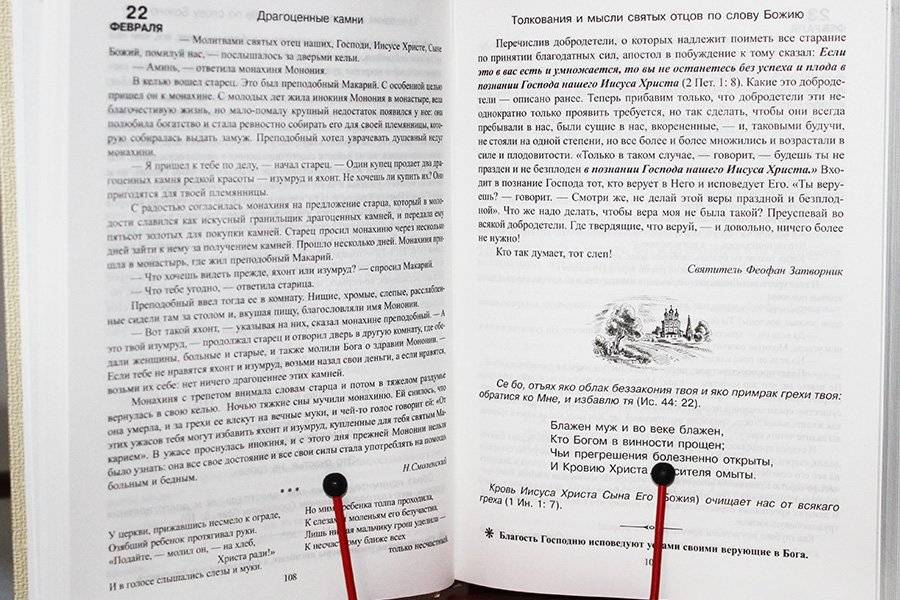 22
ФЕВРАЛЯ
Драгоценные камни
— Молитвами святых отец наших, Господи, Иисусе Христе, Сыне
Божий, помилуй нас, — послышалось за дверьми кельи.
— Аминь, — ответила монахиня Монония.
В келью вошел старец. Это был преподобный Макарий. С особенной целью
пришел он к монахине. С молодых лет жила инокиня Монония в монастыре, вела
благочестивую жизнь, но мало-помалу крупный недостаток появился у нее: она
полюбила богатство и стала ревностно собирать его для своей племянницы, кото-
рую собиралась выдать замуж. Преподобный хотел уврачевать душевный недуг
монахини.
— Я пришел к тебе по делу, — начал старец. — Один купец продает два дра-
гоценных камня редкой красоты — изумруд и яхонт. Не хочешь ли купить их? Они
пригодятся для твоей племянницы.
С радостью согласилась монахиня на предложение старца, который в моло-
дости славился как искусный гранильщик драгоценных камней, и передала ему
пятьсот золотых для покупки камней. Старец просил монахиню через несколько
дней зайти к нему за получением камней. Прошло несколько дней. Монахиня при-
шла в монастырь, где жил преподобный Макарий.
— Что хочешь видеть прежде, яхонт или изумруд? — спросил Макарий.
— Что тебе угодно, — ответила старица.
Преподобный ввел тогда ее в комнату. Нищие, хромые, слепые, расслаблен-
ные сидели там за столом и, вкушая пищу, благословляли имя Мононии.
— Вот такой яхонт, — указывая на них, сказал монахине преподобный. — А
это твой изумруд, — продолжал старец и отворил дверь в другую комнату, где обе-
дали женщины, больные и старые, и также молили Бога о здравии Мононии. —
Если тебе не нравятся яхонт и изумруд, возьми назад свои деньги, а если нравятся,
возьми их себе: нет ничего драгоценнее этих камней.
Монахиня с трепетом внимала словам старца и потом в тяжелом раздумье
вернулась в свою келью. Ночью тяжкие сны мучили монахиню. Ей снилось, что
она умерла, и за грехи ее влекут на вечные муки, и чей-то голос говорит ей: «От
этих ужасов тебя могут избавить яхонт и изумруд, купленные для тебя святым Ма-
карием». В ужасе проснулась инокиня, и с этого дня прежней Мононии нельзя
было узнать: она все свое достояние и все свои силы стала употреблять на помощь
больным и бедным.
Н.Смоленский
* * *
У церкви, прижавшись несмело к ограде,
Озябший ребенок протягивал руки.
«Подайте, — молил он, — на хлеб,
Христа ради!»
И в голосе слышались слезы и муки.
Но мимо ребенка толпа проходила,
К слезам и моленьям его безучастна,
Лишь нищая мальчику грош уделила —
К несчастному ближе всех
только несчастный
108
Толкования и мысли святых отцов по слову Божию
Перечислив добродетели, о которых надлежит поиметь все старание
по принятии благодатных сил, апостол в побуждение к тому сказал: Если
это в вас есть и умножается, то вы не останетесь без успеха и плода в
познании Господа нашего Иисуса Христа (2 Пет. 1: 8). Какие это доброде-
тели — описано ранее. Теперь прибавим только, что добродетели эти не-
однократно только проявить требуется, но так сделать, чтобы они всегда
пребывали в нас, были сущие в нас, вкорененные, — и, таковыми будучи,
не стояли на одной степени, но все более и более множились и возрастали в
силе и плодовитости. «Только в таком случае, — говорит, — будешь ты не
празден и не безплоден в познании Господа нашего Иисуса Христа.» Вхо-
дит в познание Господа тот, кто верует в Него и исповедует Его. «Ты веру-
ешь? — говорит. — Смотри же, не делай этой веры праздной и безплод-
ной». Что же надо делать, чтобы вера моя не была такой? Преуспевай во
всякой добродетели. Где твердящие, что веруй, — и довольно, ничего более
не нужно!
Кто так думает, тот слеп!
Святитель Феофан Затворник
Се бо, отъях яко облак беззакония твоя и яко примрак грехи твоя:
обратися ко Мне, и избавлю тя (Ис. 44: 22).
Блажен муж и во веке блажен,
Кто Богом в винности прощен;
Чьи прегрешения болезненно открыты,
И Кровию Христа сителя омыты.
Кровь Иисуса Христа Сына Его (Божия) очищает нас от всякаго
греха (1 Ин. 1: 7).
* Благость Господню исповедуют устами своими верующие в Бога.